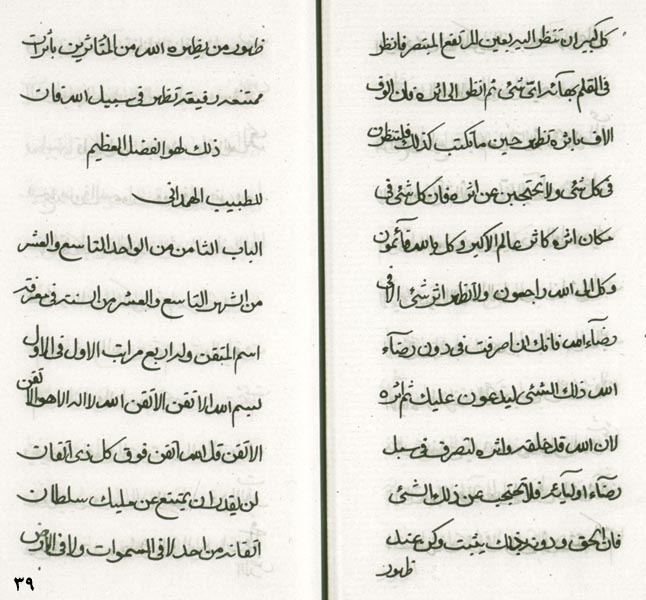 كل كبير ان تنظر اليه بعين المرتفع المبتصر فانظر
في القلم بها اثر ايّ شئ ثم انظر الى اثره فان الوف
الاف باثره تظهر حين ما تكتب كذلك فلينظرن
في كل شئ ولا تحجبن عن اثره فان كل شئ في
مكان اثره كاثر عالم الاكبر وكل بالله قائمون
وكل الى الله راجعون ولا تظهر اثر شئ الا في
رضاء الله فانك ان صرفت في دون رضاء
الله ذلك الشئ ليدعون عليك ثمره
لان الله قد خلقه واثره لتصرف في سبل
رضاء اوليائه فلا تحتجبن عن ذلك بالشئ
فان الحق ودونه بذلك يثبت وكن عند
ظهور
ظهور من يظهره الله من المتاثرين باثرات
ممتنعه رفيعه تظهر في سبيل الله فان
ذلك لهو الفضل العظيم
للطبيب الهمداني
الباب الثامن من الواحد التاسع والعشر
من الشهر التاسع والعشر من السنه في معرفة
اسم المتقن وله اربع مراتب الاول في الاول
بسم الله الاتقن الاتقن الله لا اله الا هو الاتقن
الاتقن قل الله اتقن فوق كل ذي اتقان
لن يقدر ان يمتنع عن مليك سلطان
اتقانه من احد لا في السموات ولا في الارض
٣٩